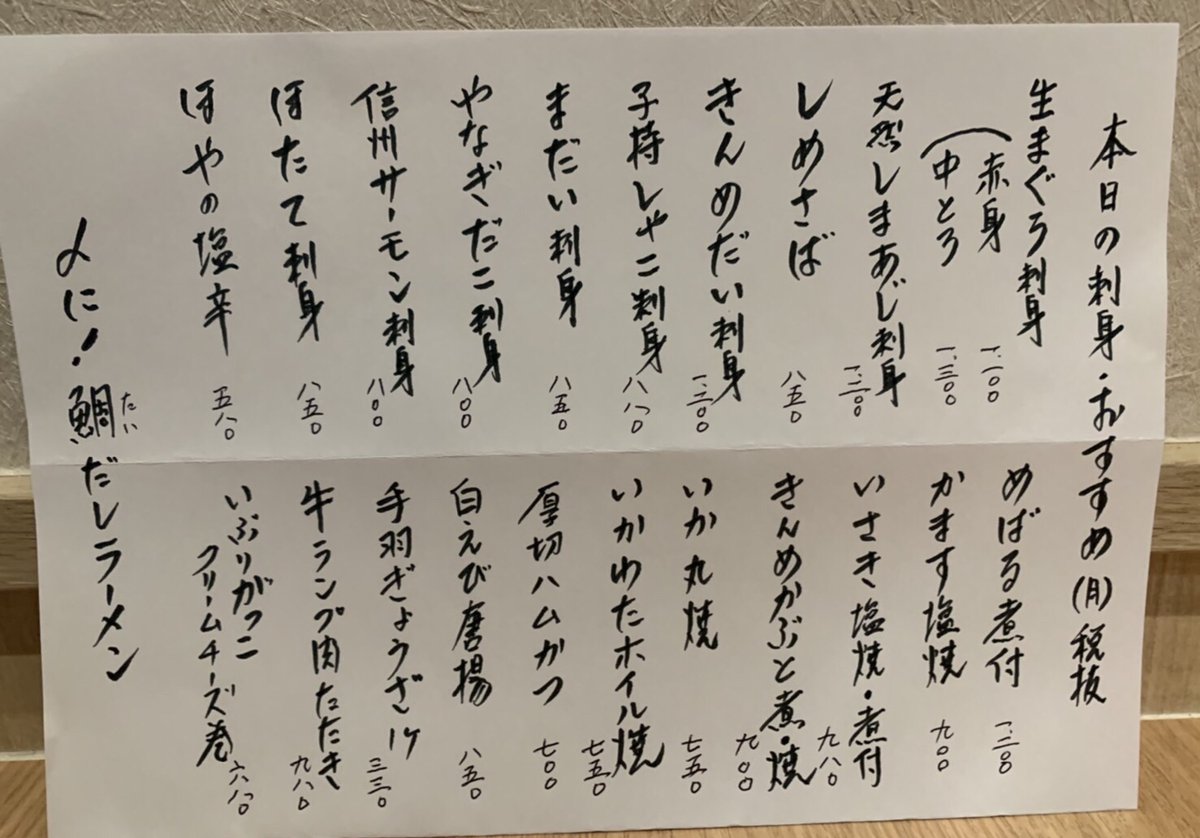 本日の刺身・おすすめ(月)税抜
生まぐろ刺身
赤身 一、一〇〇
中とろ 一、三〇〇
天然しまあじ刺身 一、二〇〇
しめさば 八五〇
きんめだい刺身 一、二〇〇
子持しゃこ刺身 八八〇
まだい刺身 八五〇
やなぎだこ刺身 八〇〇
信州サーモン刺身 八〇〇
ほたて刺身 八五〇
ほやの塩辛 五八〇
めばる煮付 一、二〇〇
かます塩焼 九〇〇
いさき塩焼・煮付 九八〇
きんめかぶと煮・焼 九〇〇
いか丸焼 七五〇
いかわたホイル焼 七五〇
厚切ハムかつ 七〇〇
白えび唐揚 八五〇
手羽ぎょうざ1ヶ 三三〇
牛ランプ肉たたき 九八〇
いぶりがっこ
クリームチーズ巻 六八〇
〆に!鯛だしラーメン
たい